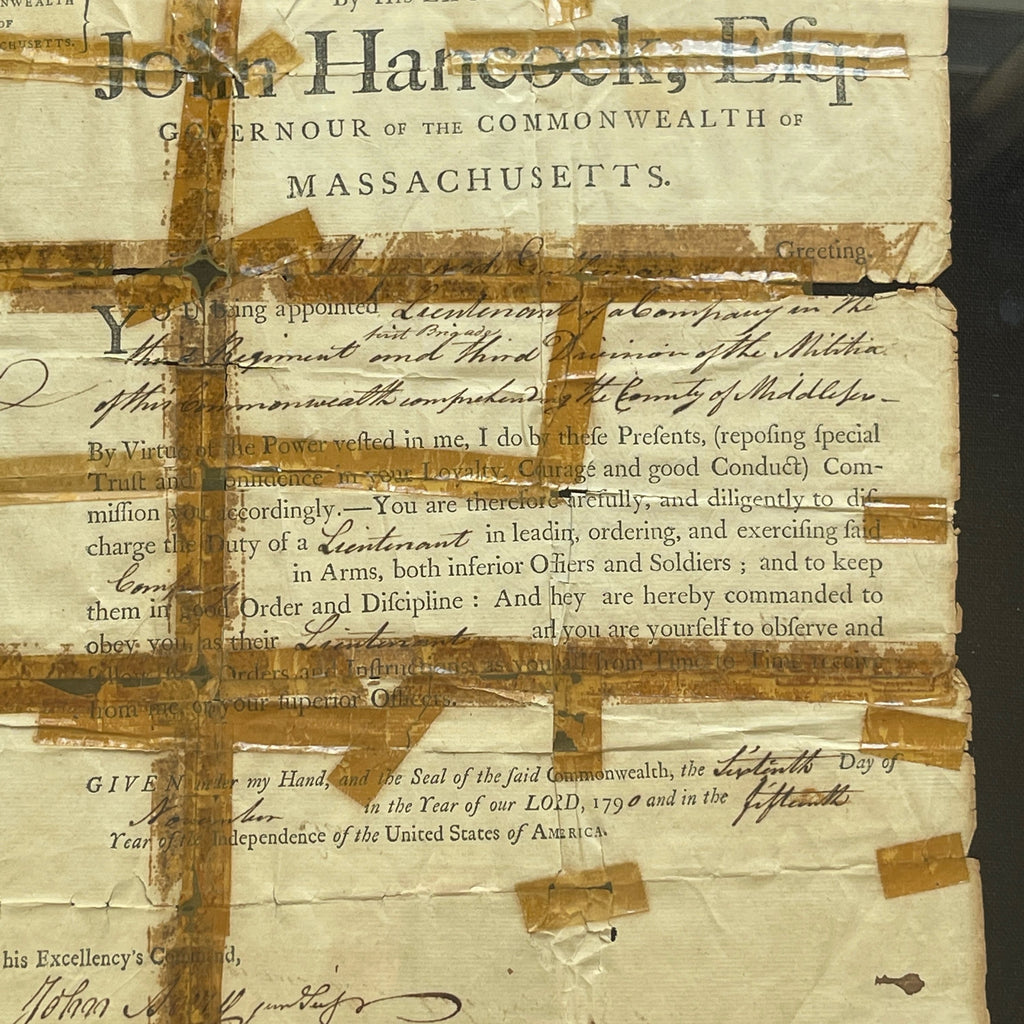 NWEALTH
OF
CHUSETTS.
By His
John Hancock, Eſq.
GOVERNOUR OF THE COMMONWEALTH OF
MASSACHUSETTS.
Gentleman Greeting.
YOU being appointed Lieutenant of a Company in the
first Brigade
third Regiment and third Division of the Militia
of this Commonwealth comprehending the County of Middlesex
By Virtue of the Power veſted in me, I do by theſe Preſents, (repoſing ſpecial
Truſt and Confidence in your Loyalty, Courage and good Conduct) Com-
miſſion you accordingly.—You are therefore carefully, and diligently to diſ-
charge the Duty of a Lieutenant in leadin, ordering, and exerciſing ſaid
Company in Arms, both inferior Officers and Soldiers ; and to keep
them in good Order and Diſcipline : And hey are hereby commanded to
obey you as their Lieutenant and you are yourſelf to obſerve and
follow Orders and Inſtructions, as you ſhall from Time to Time receive
from me, or your ſuperior Officers.
GIVEN under my Hand, and the Seal of the ſaid Commonwealth, the Sixteenth Day of
November in the Year of our LORD, 1790 and in the fifteenth
Year of the Independence of the United States of AMERICA.
his Excellency's Command,
John Avery jun Secy